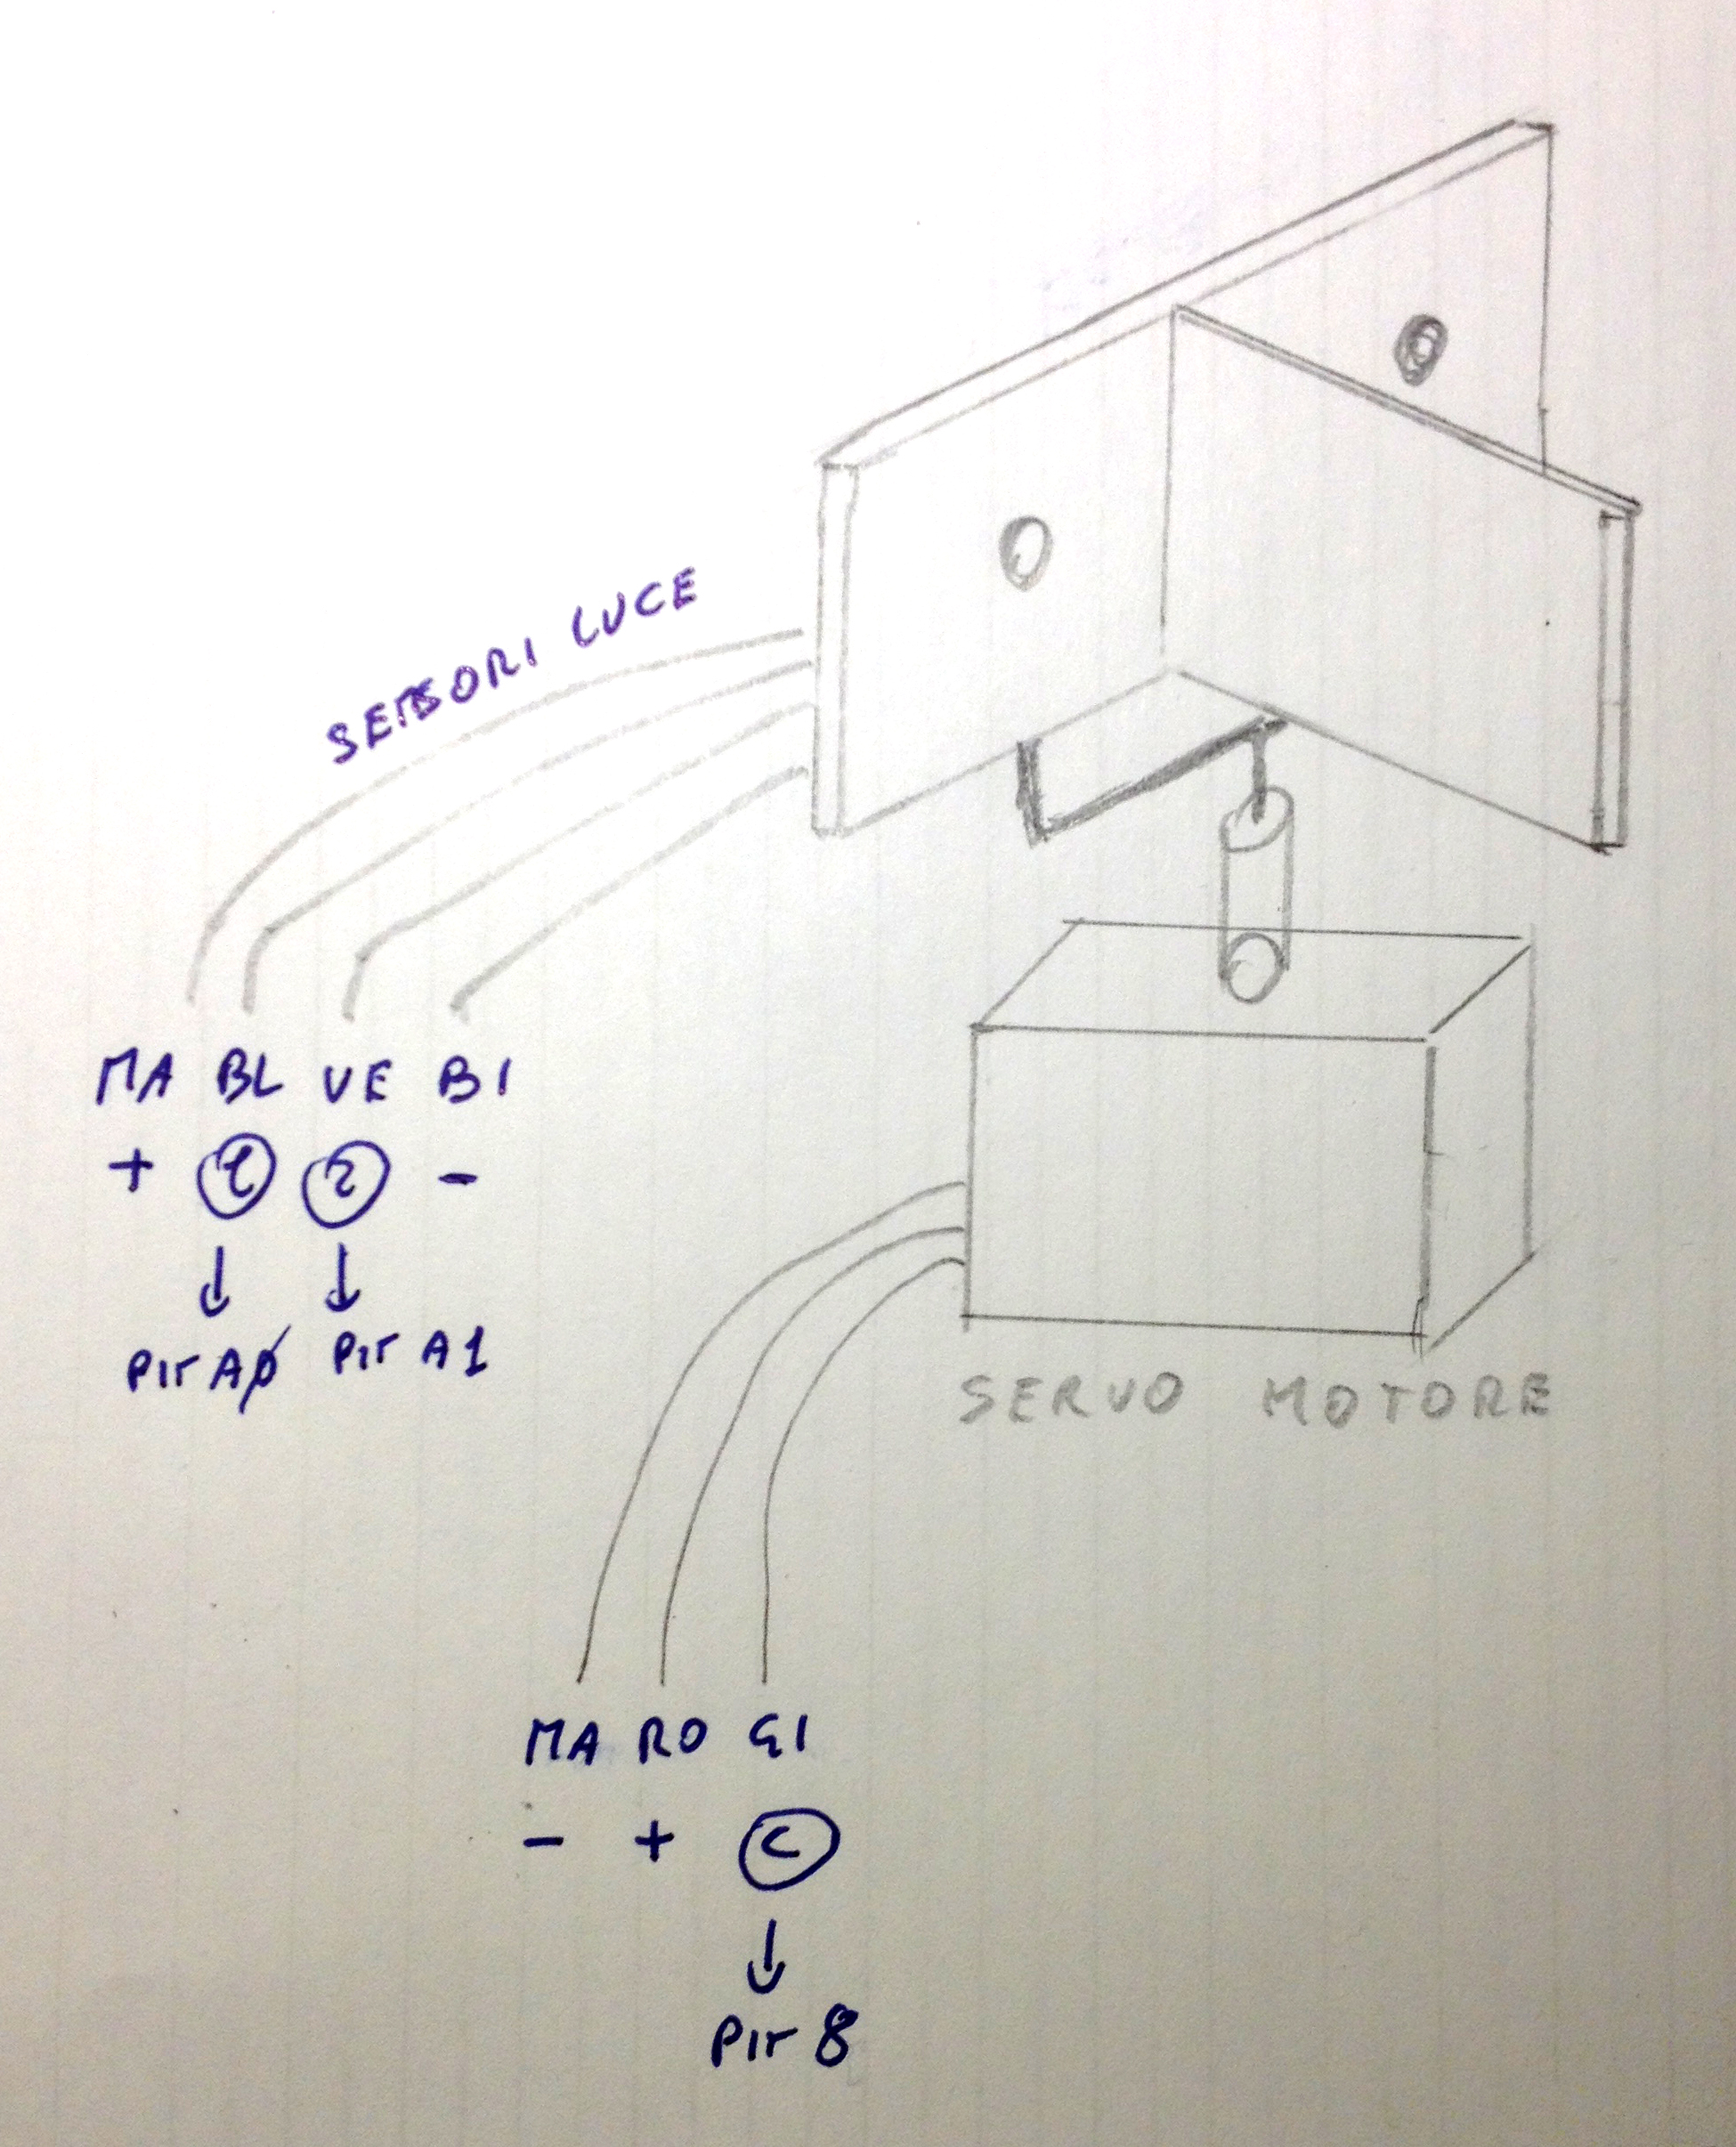 SENSORI LUCE
MA BL VE BI
+ 1 2 -
↓ ↓
PIN A0 PIN A1
SERVO MOTORE
MA RO GI
- + C
↓
PIN 8